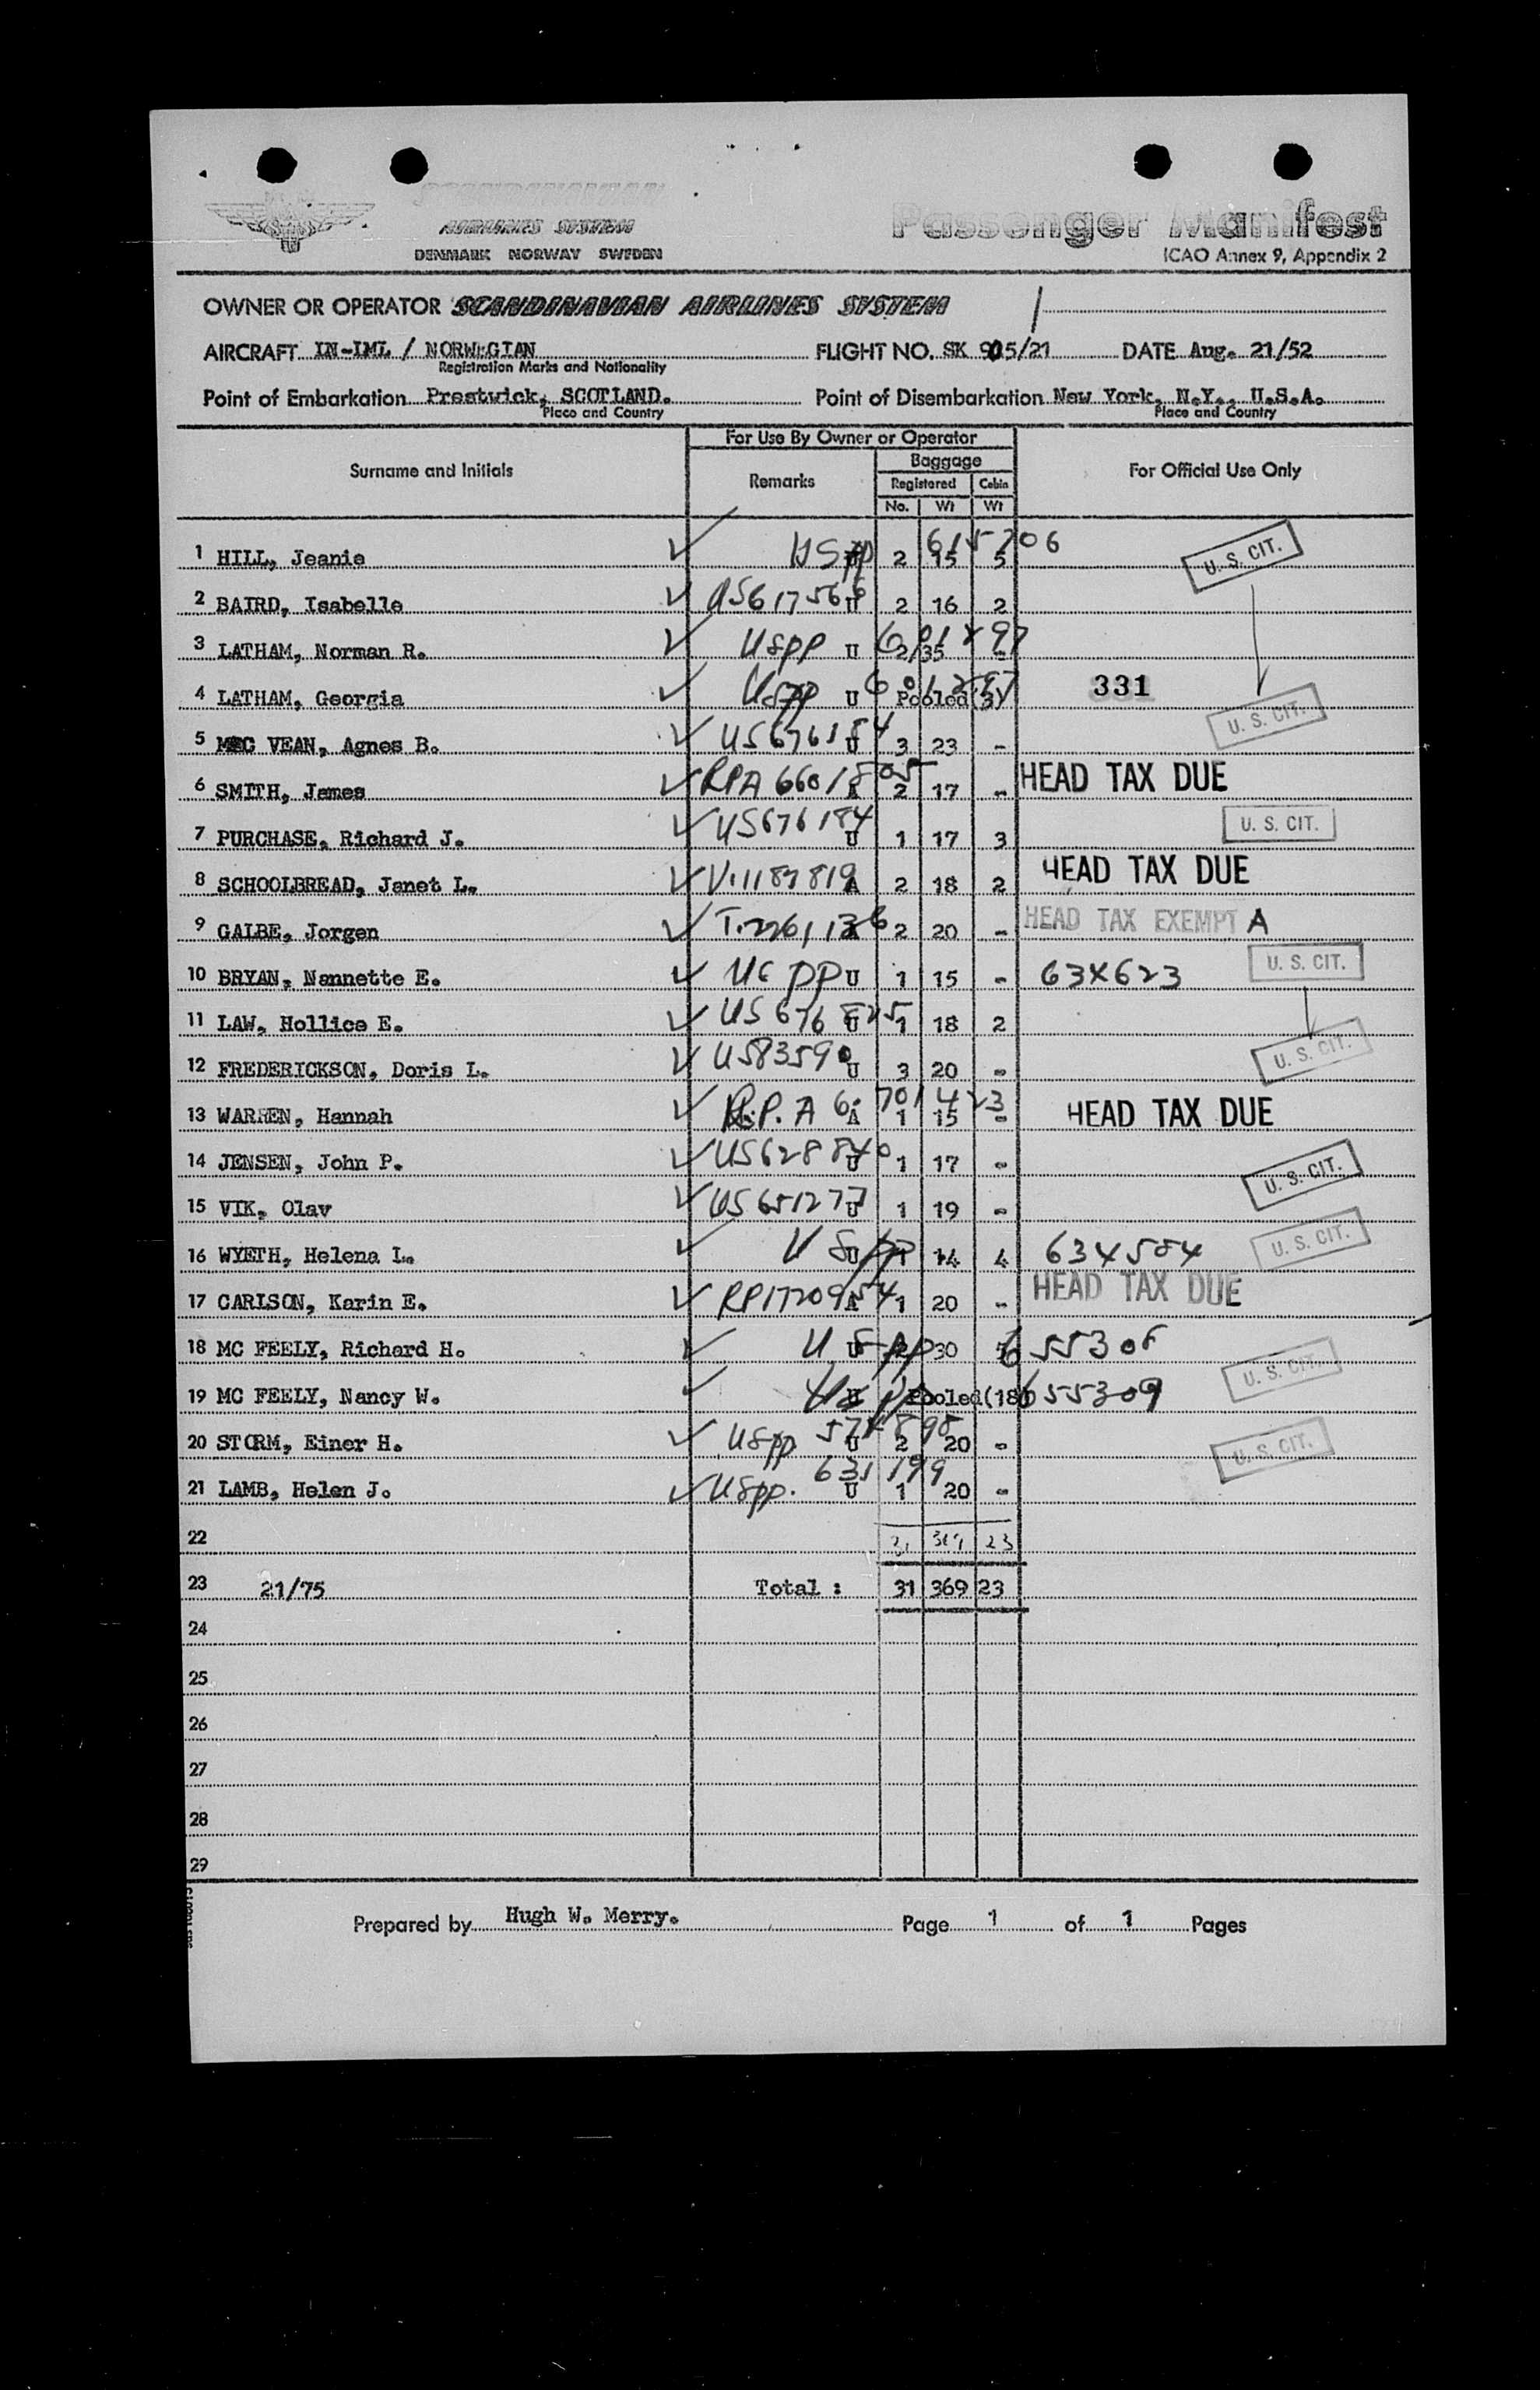 AIRLINES SYSTEM
DENMARK NORWAY SWEDEN
Passenger Manifest
ICAO Annex 9, Appendix 2
OWNER OR OPERATOR SCANDINAVIAN AIRLINES SYSTEM
AIRCRAFT LN-IML / NORWEGIAN FLIGHT NO. SK 905/21 DATE Aug. 21/52
Registration Marks and Nationality
Point of Embarkation Prestwick, SCOTLAND. Point of Disembarkation New York, N.Y., U.S.A.
Place and Country Place and Country
For Use By Owner or Operator
Surname and Initials Remarks Baggage For Official Use Only
Registered Cabin
No. Wt Wt
1 HILL, Jeanie USpp 2 15 5 U. S. CIT.
2 BAIRD, Isabelle U 2 16 2
3 LATHAM, Norman R. USpp U 2/35 -
4 LATHAM, Georgia USpp U Pooled(3) 331 U. S. CIT.
5 MC VEAN, Agnes B. US676184 U 3 23 -
6 SMITH, James RPA 6601805 A 2 17 - HEAD TAX DUE
7 PURCHASE, Richard J. US676184 U 1 17 3 U. S. CIT.
8 SCHOOLBREAD, Janet L. V.1187819 A 2 18 2 HEAD TAX DUE
9 GALBE, Jorgen 2 20 - HEAD TAX EXEMPT A
10 BRYAN, Nannette E. US pp U 1 15 - 634623 U. S. CIT.
11 LAW, Hollice E. US 676825 U 1 18 2
12 FREDERICKSON, Doris L. US83590 U 3 20 - U. S. CIT.
13 WARREN, Hannah R.P.A 6701423 A 1 15 - HEAD TAX DUE
14 JENSEN, John P. US628840 U 1 17 -
15 VIK, Olav US651277 U 1 19 - U. S. CIT.
16 WYETH, Helena L. USpp U 1 14 4 634584 U. S. CIT.
17 CARLSON, Karin E. A 1 20 - HEAD TAX DUE
18 MC FEELY, Richard H. U Spp U 2 30 U. S. CIT.
19 MC FEELY, Nancy W. US pp U Pooled(18) 655309
20 STORM, Einer H. USpp 574898 U 2 20 - U. S. CIT.
21 LAMB, Helen J. USpp. 631199 U 1 20 -
22 31 369 23
23 21/75 Total : 31 369 23
24
25
26
27
28
29
Prepared by Hugh W. Merry. Page 1 of 1 Pages